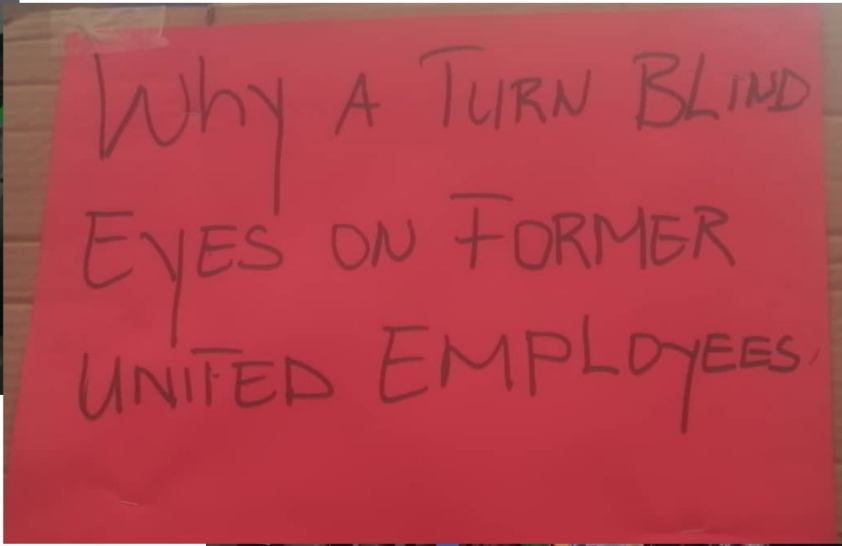 Why A TURN BLIND
EyES ON FORMER
UNITED EMPLOyEES.